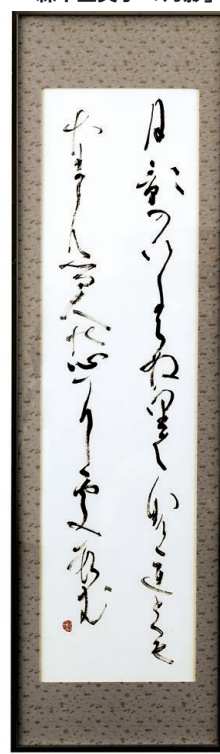 月影のいたらぬ里はなけれとも
なかむる人の心にそすむ